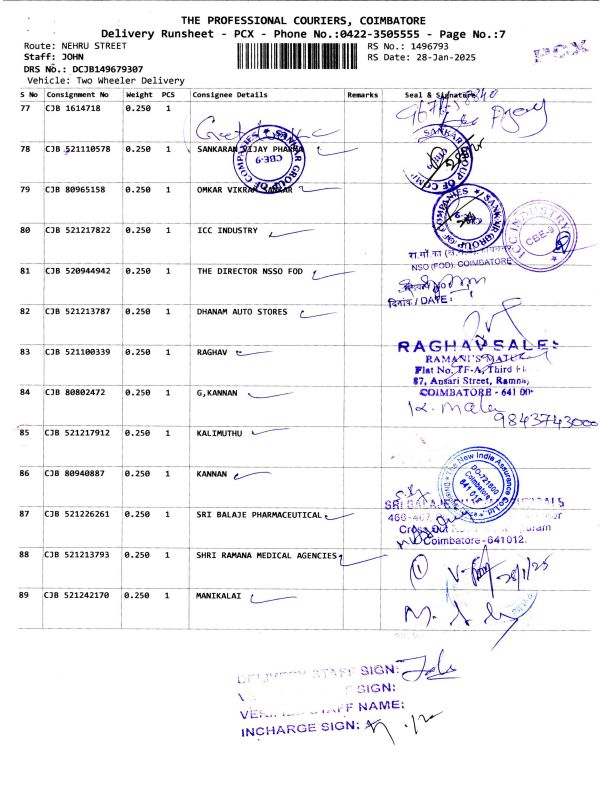 THE PROFESSIONAL COURIERS, COIMBATORE
Delivery Runsheet - PCX - Phone No.:0422-3505555 - Page No.:7
Route: NEHRU STREET
RS No.: 1496793
Staff: JOHN
RS Date: 28-Jan-2025
PCX
DRS No.: DCJB149679307
Vehicle: Two Wheeler Delivery
S No Consignment No Weight PCS Consignee Details Remarks Seal & Signature
77 CJB 1614718 0.250 1
78 CJB 521110578 0.250 1 SANKARAN VIJAY
SANKAR GROUP OF COMPANIES CBE-9
79 CJB 80965158 0.250 1 OMKAR
SANKAR GROUP OF COMPANIES
80 CJB 521217822 0.250 1 ICC INDUSTRY
ICC INDUSTRY CBE-9
NSO (FOD), COIMBATORE
81 CJB 520944942 0.250 1 THE DIRECTOR NSSO FOD
दिनांक / DATE :
82 CJB 521213787 0.250 1 DHANAM AUTO STORES
83 CJB 521100339 0.250 1 RAGHAV
RAGHAV SALES
Flat No. TF-A, Third
87, Ansari Street, Ramna,
COIMBATORE - 641 00
84 CJB 80802472 0.250 1 G,KANNAN
K. Mala
9843743000
85 CJB 521217912 0.250 1 KALIMUTHU
86 CJB 80940887 0.250 1 KANNAN
The New India Assurance Co. Ltd.
DO-721600
Coimbatore
641 018
87 CJB 521226261 0.250 1 SRI BALAJE PHARMACEUTICAL
Coimbatore-641012.
88 CJB 521213793 0.250 1 SHRI RAMANA MEDICAL AGENCIES
1
28/1/25
89 CJB 521242170 0.250 1 MANIKALAI
DELIVERY STAFF SIGN:
SIGN:
STAFF NAME:
INCHARGE SIGN: